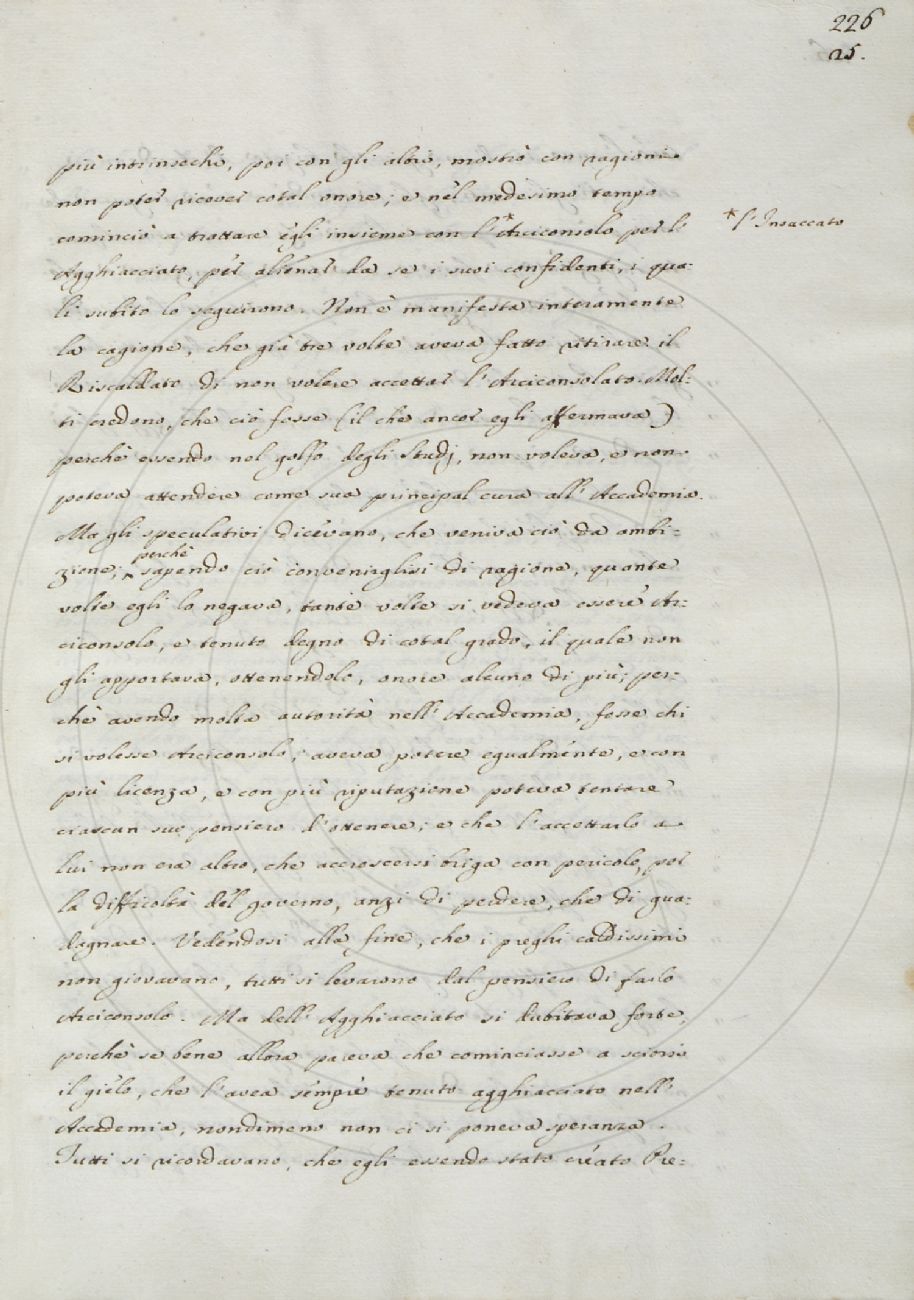 226
25.
più intrinsechi, poi con gli altri, mostrò con ragioni
non poter ricever cotal onore; e nel medesimo tempo
cominciò a trattare egli insieme con l'*Arciconsolo per l'
* l'Insaccato
Agghiacciato, per alienar da se i suoi confidenti, i qua-
li subito lo seguirono. Non è manifesta interamente
la cagione, che già tre volte aveva fatto ritirare il
Riscaldato di non volere accettar l'Arciconsolato. Mol-
ti credono, che ciò fosse (il che ancor egli affermava)
perchè essendo nel golfo degli Studj, non voleva, e non
poteva attendere come sua principal cura all'Accademia.
Ma gli speculativi dicevano, che veniva ciò da ambi-
perchè
zione; sapendo ciò convenirglisi di ragione, quante
volte egli lo negava, tante volte si vedeva essere Ar-
ciconsolo, e tenuto degno di cotal grado, il quale non
gli apportava, ottenendolo, onore alcuno di più; per-
chè avendo molta autorità nell'Accademia, fosse chi
si volesse Arciconsolo, aveva potere egualmente, e con
più licenza, e con più riputazione poteva tentare
ciascun suo pensiero d'ottenere; e che l'accettarlo a
lui non era altro, che accrescersi briga con pericolo, per
la difficoltà del governo, anzi di perdere, che di gua-
dagnare. Vedendosi alla fine, che i preghi caldissimi
non giovavano, tutti si levarono dal pensiero di farlo
Arciconsolo. Ma dell'Agghiacciato si dubitava forte,
perchè se bene allora pareva che cominciasse a sciorsi
il gielo, che l'avea sempre tenuto agghiacciato nell'
Accademia, nondimeno non ci si poneva speranza.
Tutti si ricordavano, che egli essendo stato creato Pre-